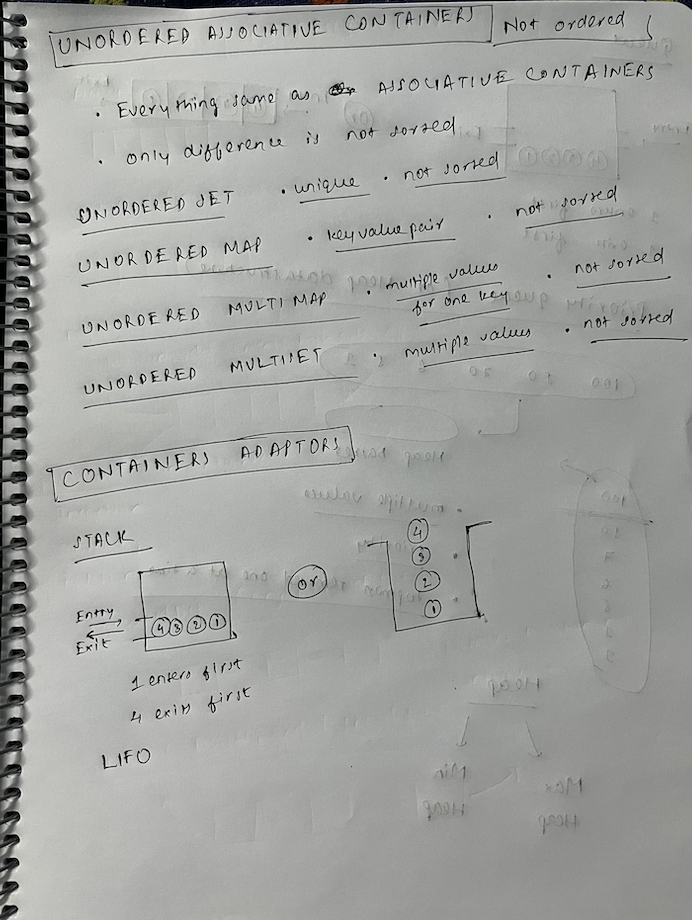 UNORDERED ASSOCIATIVE CONTAINERS Not ordered
• Everything same as ASSOCIATIVE CONTAINERS
• only difference is not sorted
UNORDERED SET • unique • not sorted
UNORDERED MAP • key value pair • not sorted
UNORDERED MULTI MAP • multiple values for one key • not sorted
UNORDERED MULTISET • multiple values • not sorted
CONTAINERS ADAPTORS
STACK
Entry
Exit
4 3 2 1
or
4
3
2
1
1 enters first
4 exits first
LIFO